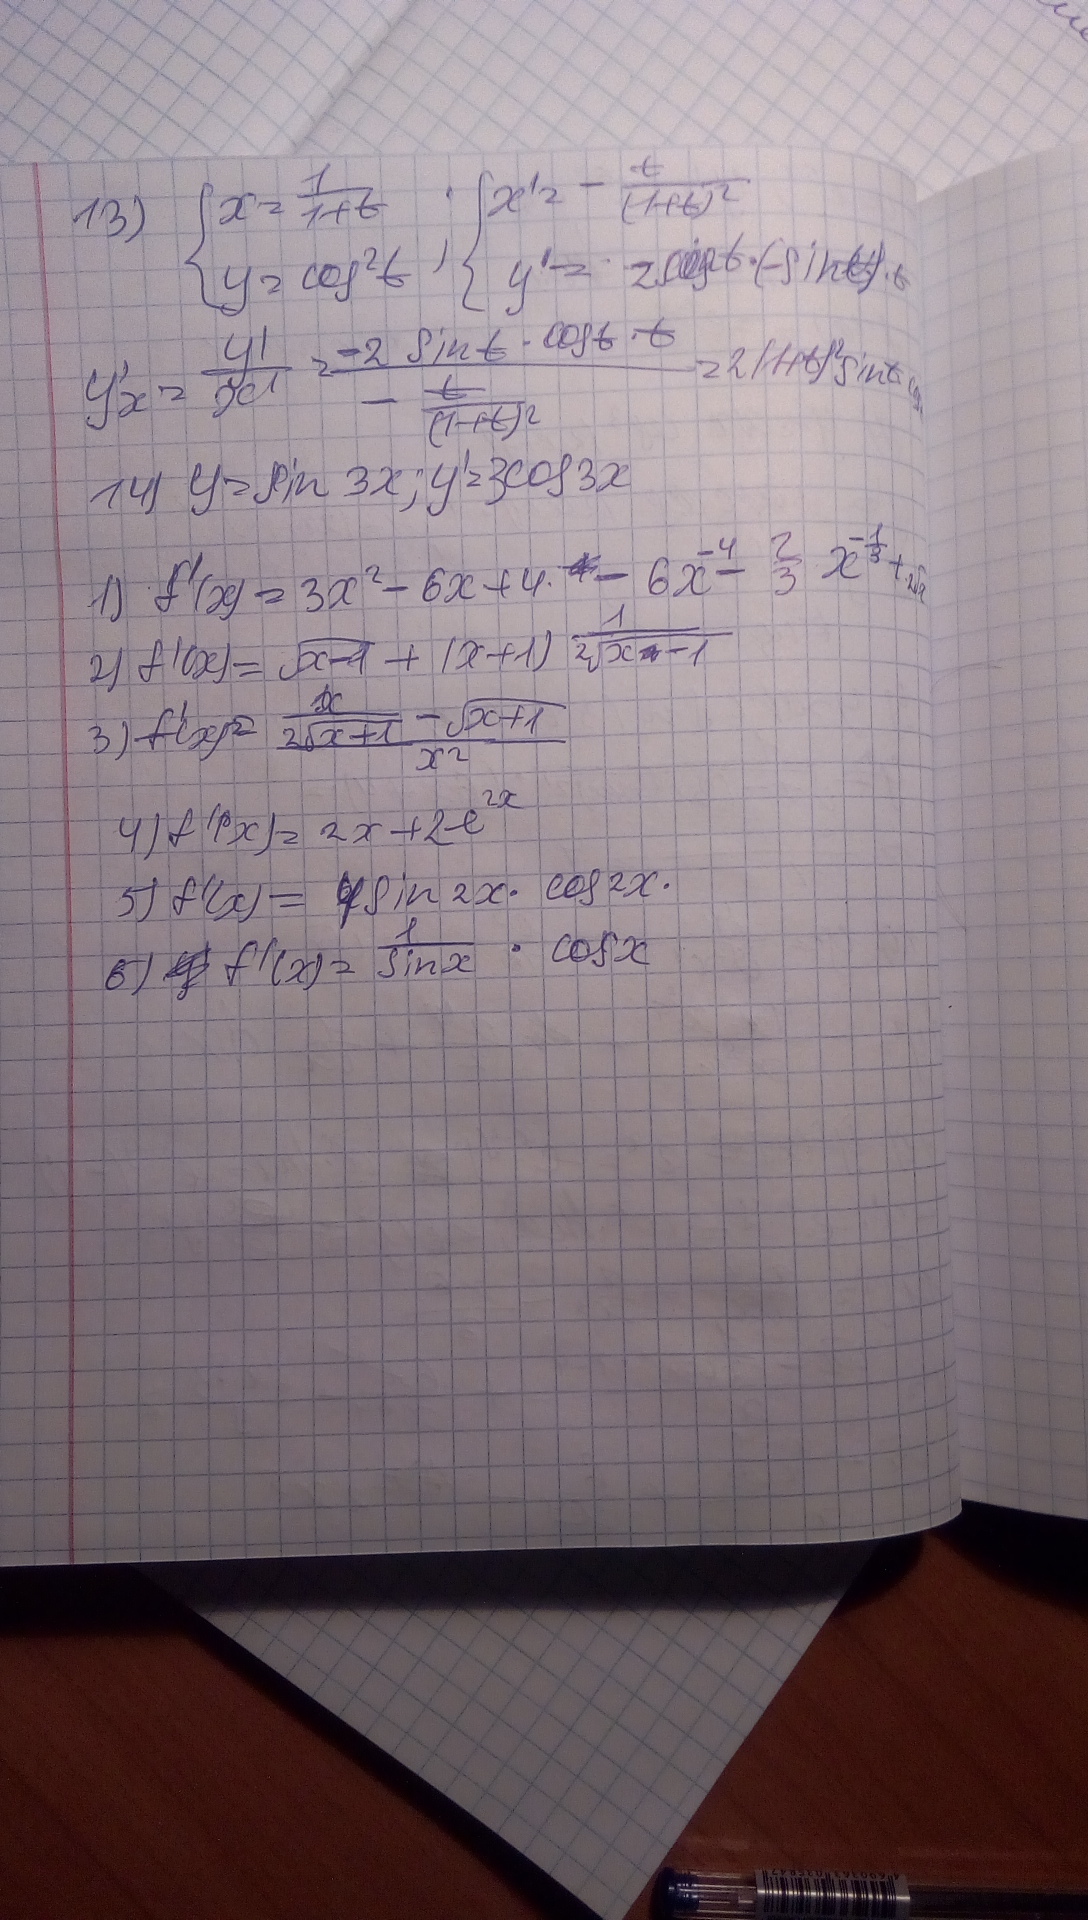 13) { x = 1/(1+t) ; { x' = - t/(1+t)²
{ y = cos²t , { y' = 2 cos t · (-sin t) · t
y'x = y'/x' = (-2 sin t · cos t · t)/(- t/(1+t)²) = 2(1+t)² sin t cos
14) y = sin 3x; y' = 3cos3x
1) f'(x) = 3x² - 6x + 4 · - 6x⁻⁴ - 2/3 x^(-1/3) +
2) f'(x) = √(x-1) + (x+1) 1/(2√(x-1))
3) f'(x) = (x/(2√(x+1)) - √(x+1))/x²
4) f'(x) = 2x + 2e^(2x)
5) f'(x) = 4 sin 2x · cos 2x.
6) f'(x) = 1/sin x · cos x
4690361035847